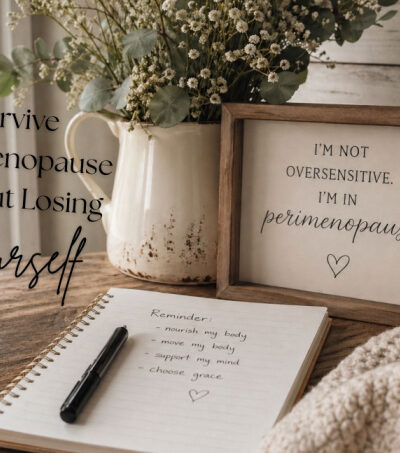 rvive
enopause
ut Losing
urself
I'M NOT
OVERSENSITIVE.
I'M IN
perimenopaus
Reminder:
- nourish my body
- move my body
- support my mind
- choose grace